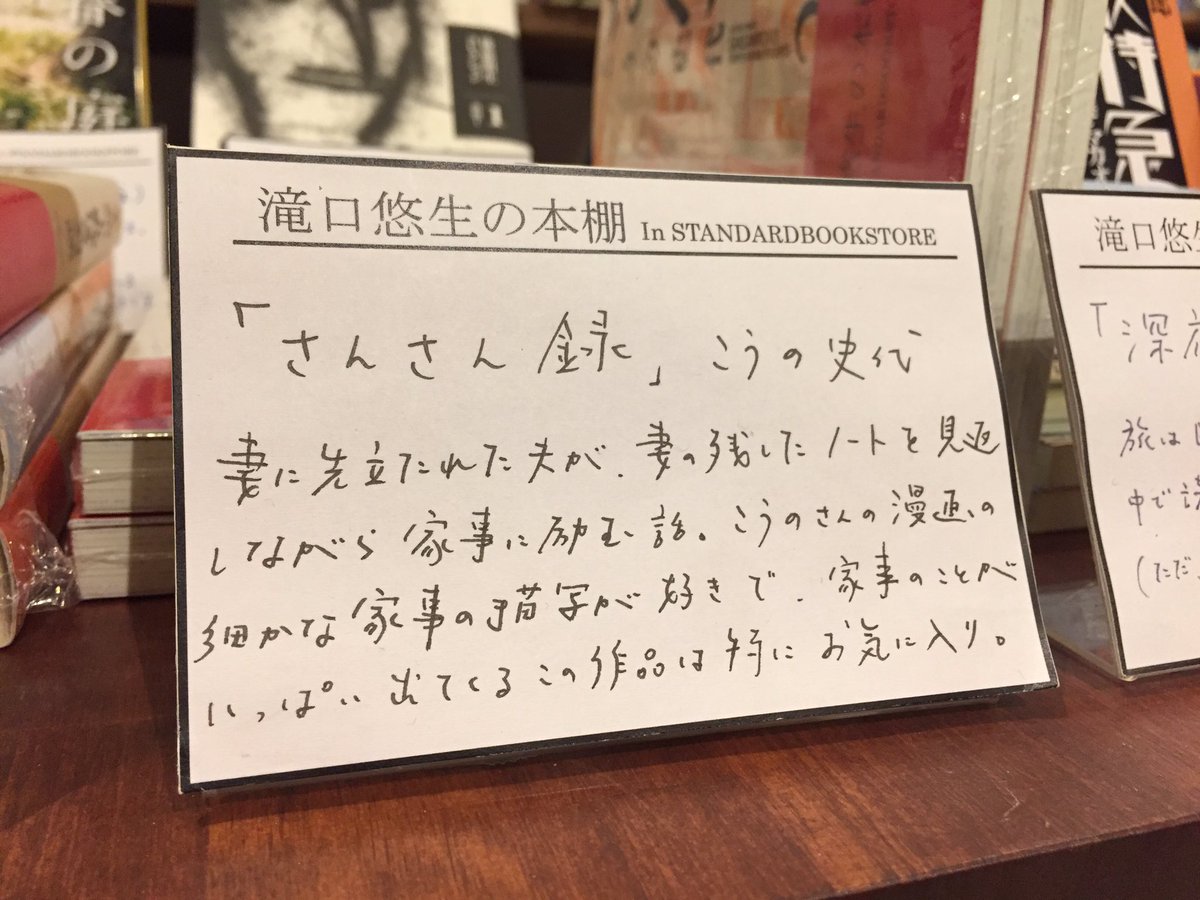 滝口悠生の本棚 In STANDARDBOOKSTORE
「さんさん録」こうの史代
妻に先立たれた夫が、妻の残したノートを見返
しながら家事に励む話。こうのさんの漫画の
細かな家事の描写が好きで、家事のことが
いっぱい出てくるこの作品は特にお気に入り。
滝口悠生
「深夜
旅は
中で
(ただ、
の庭
STANDARDBOOKSTORE